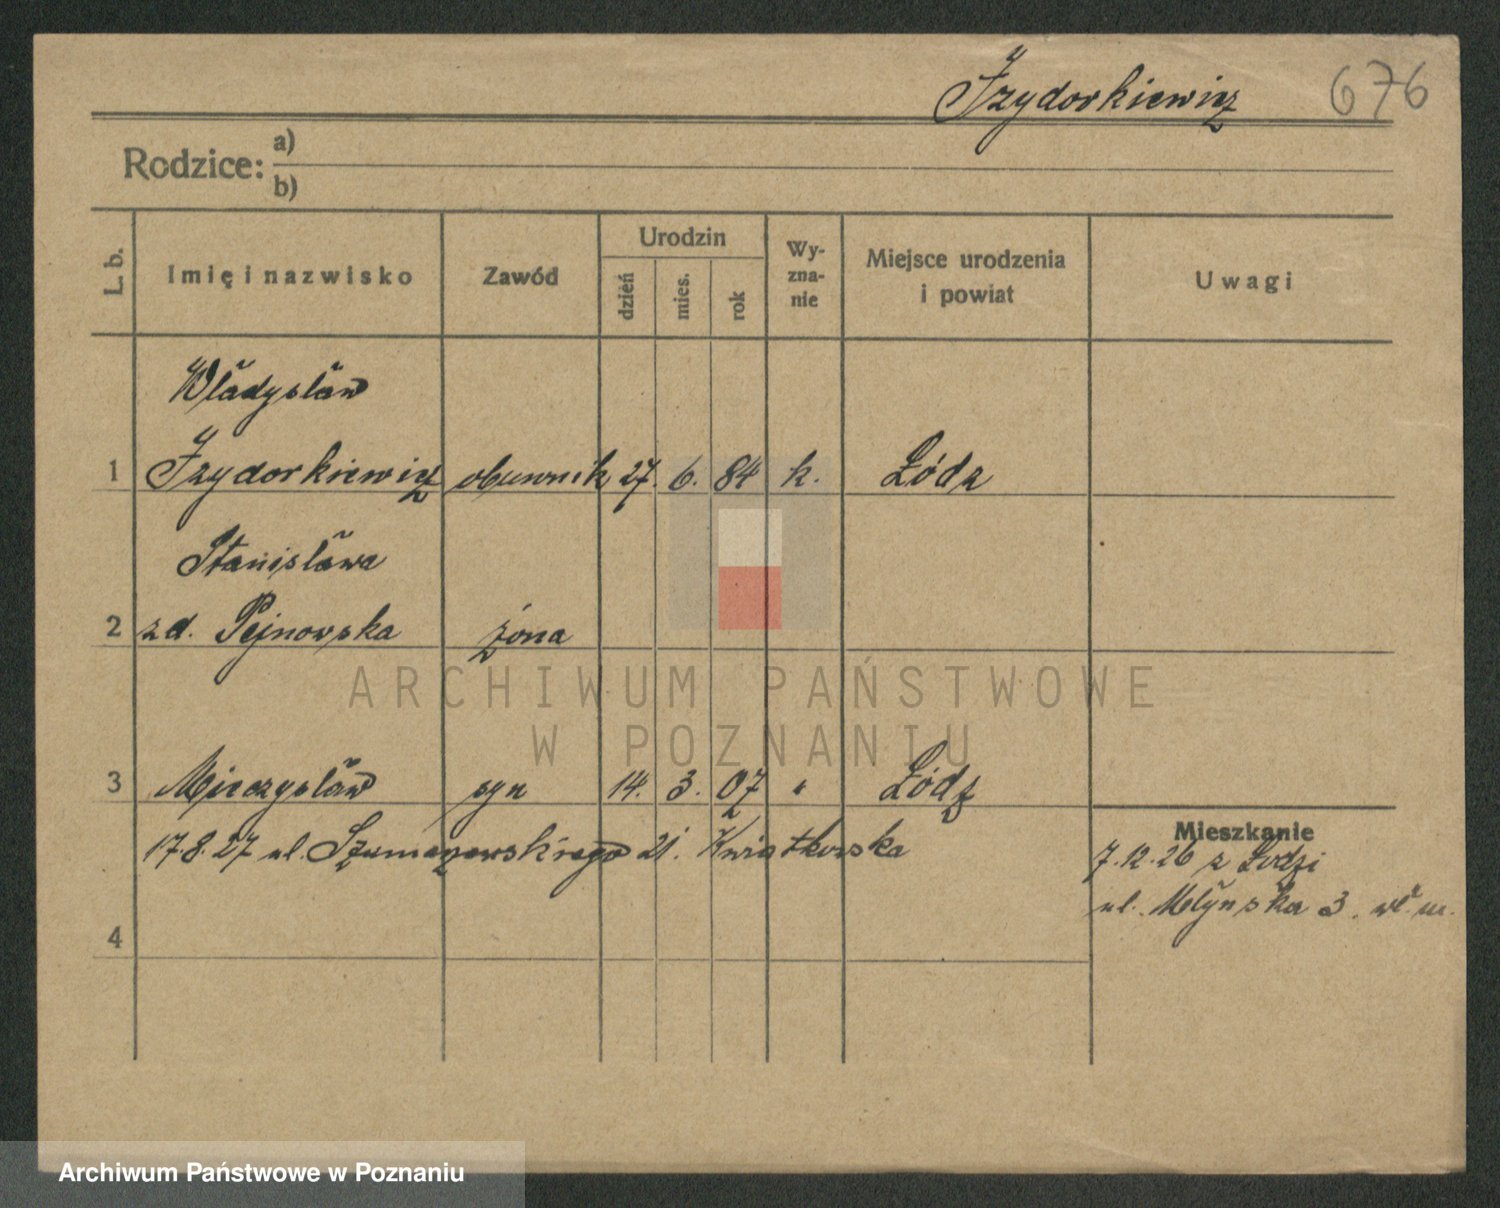 Izydorkiewicz 676
Rodzice: a)
b)
L. b. Imię i nazwisko Zawód Urodzin dzień mies. rok Wy-zna-nie Miejsce urodzenia i powiat Uwagi
Władysław
1 Izydorkiewicz obuwnik 27. 6. 84 k. Łódz
Stanisława
2 zd. Pejnowska żona
ARCHIWUM PAŃSTWOWE
W POZNANIU
3 Mieczysław syn 14. 3. 07 " Łódź
17.8.27 ul. 21. Kwiatkowska
Mieszkanie
7.12.26 z Łodzi
ul. Młyńska 3. wł. m.
4
Archiwum Państwowe w Poznaniu